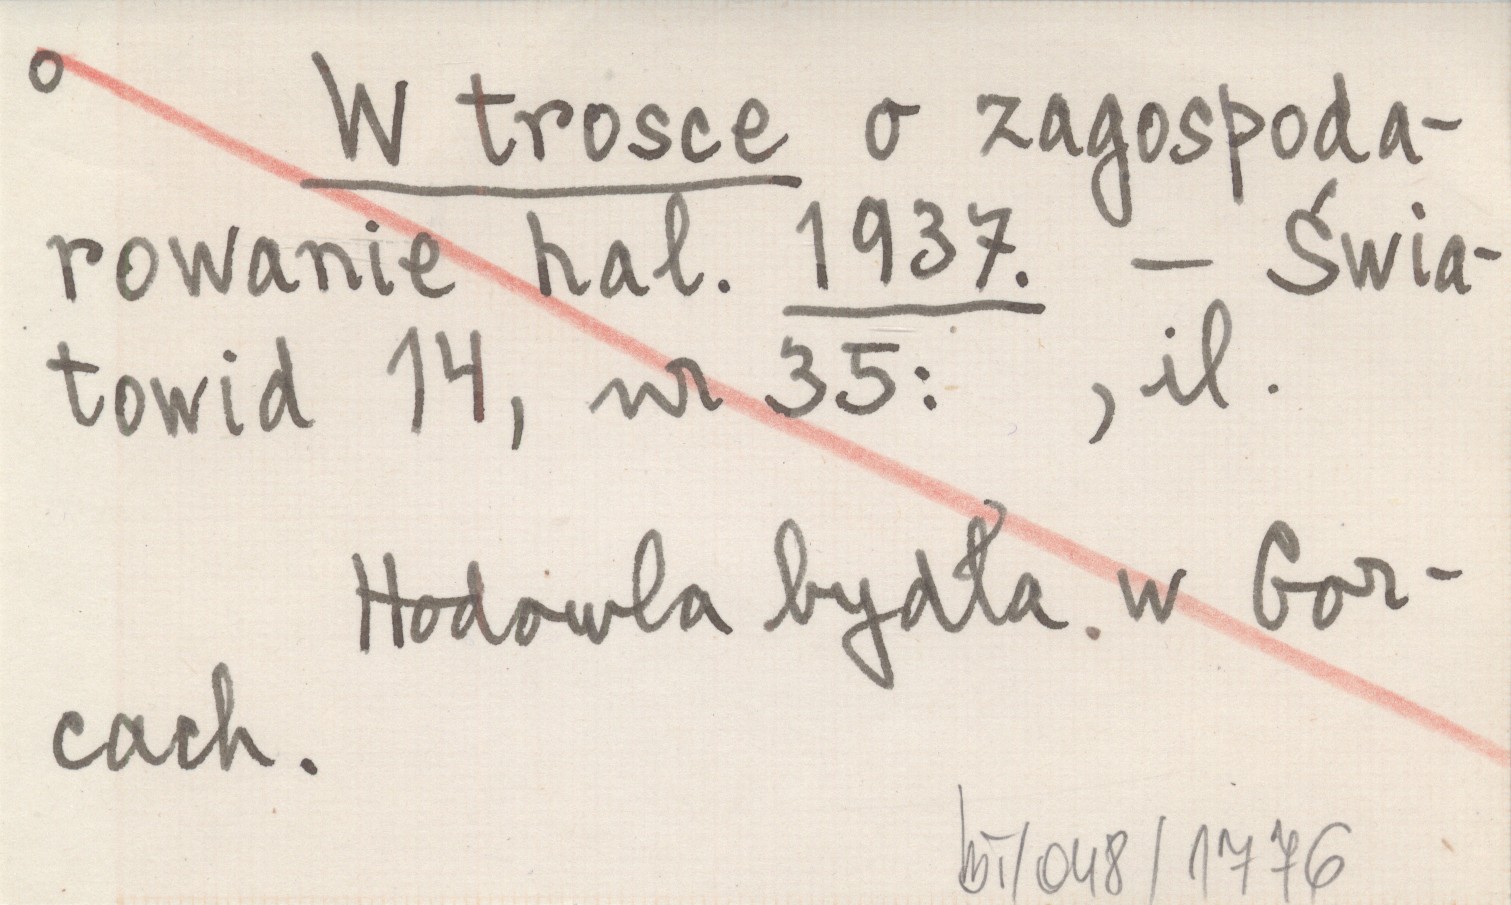 o W trosce o zagospoda-
rowanie hal. 1937. — Świa-
towid 14, nr 35: , il.
Hodowla bydła w Gor-
cach.
/048/1776